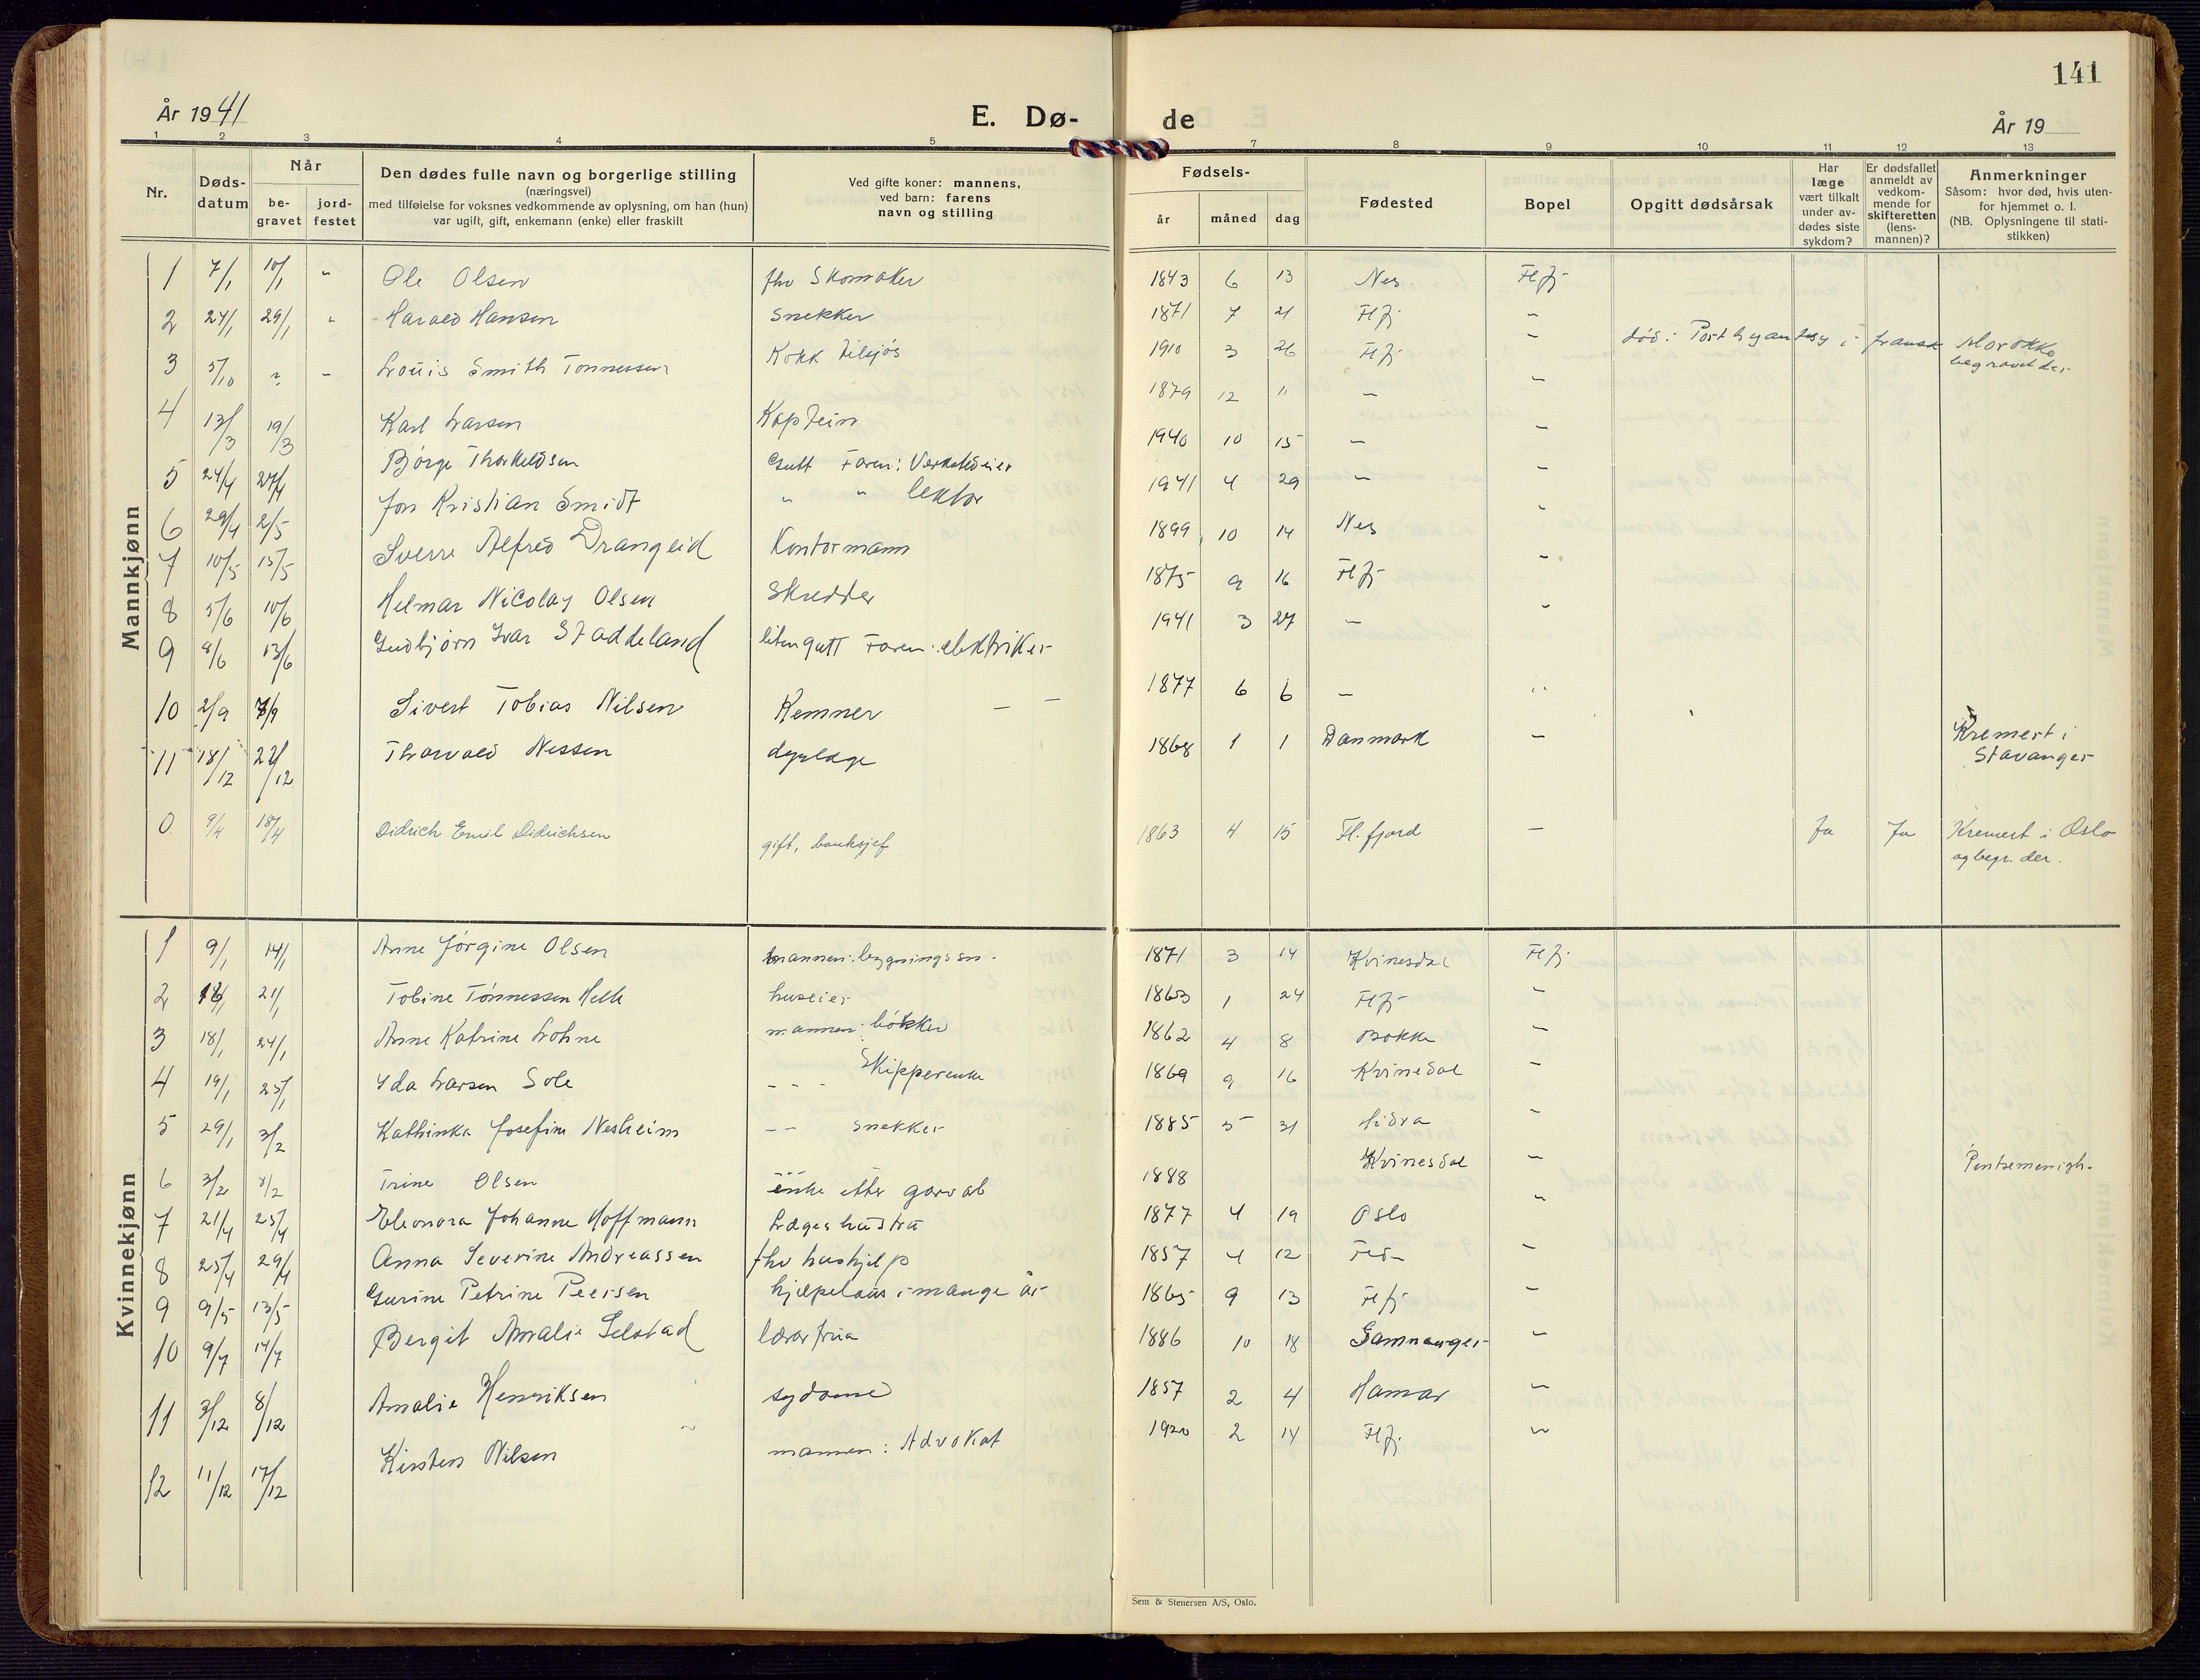 141
År 1941
E. Dø-
de
År 19
1 2 3 4 5 7 8 9 10 11 12 13
Nr.
Døds-
datum
Når
be-
gravet
jord-
festet
Den dødes fulle navn og borgerlige stilling
(næringsvei)
med tilføielse for voksnes vedkommende av oplysning, om han (hun)
var ugift, gift, enkemann (enke) eller fraskilt
Ved gifte koner: mannens,
ved barn: farens
navn og stilling
Fødsels-
år måned dag
Fødested
Bopel
Opgitt dødsårsak
Har
læge
vært tilkalt
under av-
dødes siste
sykdom?
Er dødsfallet
anmeldt av
vedkom-
mende for
skifteretten
(lens-
mannen)?
Anmerkninger
Såsom: hvor død, hvis uten-
for hjemmet o. l.
(NB. Oplysningene til stati-
stikken)
Mannkjønn
1 7/1 10/1 " Ole Olsen fhv Skomaker 1843 6 13 Nes Flfj
2 24/1 29/1 " Harald Hansen Snekker 1871 7 21 Flfj –
3 5/10 ? – Louis Smith Tønnessen Kokk tilsjøs 1910 3 26 Flfj – død: Port i fransk Marokko
begravet der
4 13/3 19/3 Karl Larsen Kaptein 1879 12 11 – –
5 24/4 27/4 Børge Thorkeldsen Gutt Faren: Verkstedeier 1940 10 15 – –
6 29/4 2/5 Jon Kristian Smidt " " lektor 1941 4 29 – –
7 10/5 15/5 Sverre Alfred Drangeid Kontormann 1899 10 14 Nes "
8 5/6 10/6 Helmar Nicolay Olsen Skredder 1875 9 16 Flfj –
9 8/6 13/6 Gudbjørn Ivar Staddeland liten gutt Faren: elektriker 1941 3 27 – "
10 2/9 7/9 Sivert Tobias Nilsen Kemner – – 1877 6 6 – "
11 18/12 22/12 Thorvald Nessen dyrlæge 1868 1 1 Danmark – Kremert i
Stavanger
0 9/4 18/4 Didrich Emil Didrichsen gift, banksjef 1863 4 15 Fl.fjord – Ja Ja Kremert i Oslo
og begr. der.
Kvinnekjønn
1 9/1 14/1 Anne Jørgine Olsen mannen: bygningssn. 1871 3 14 Kvinesdal Flfj
2 18/1 21/1 Tobine Tønnessen Helle huseier 1863 1 24 Flfj –
3 18/1 24/1 Anne Katrine Lohne mannen: bøkker 1862 4 8 Bakke –
4 19/1 25/1 Ida Larsen Sole – – – Skipperenke 1869 9 16 Kvinesdal –
5 29/1 3/2 Kathinka Josefine Nesheim – – snekker 1885 5 31 Hidra –
6 3/2 8/2 Trine Olsen enke etter garv. 1888 Kvinesdal – Pinsemenigh.
7 21/4 25/4 Eleonora Johanne Hoffmann Lægeshustru 1877 4 19 Oslo "
8 25/4 29/4 Anna Severine Andreassen fhv hushjelp 1857 4 12 Feda –
9 9/5 13/5 Gurine Petrine Peersen hjelpelaus i mange år 1865 9 13 Flfj –
10 9/7 14/7 Bergit Amalie Selstad lærerfrua 1886 10 18 Samnanger –
11 3/12 8/12 Amalie Henriksen sydame 1857 2 4 Hamar –
12 11/12 17/12 Kirsten Nilsen mannen: Advokat 1920 2 14 Flfj. "
Sem & Stenersen A/S, Oslo.